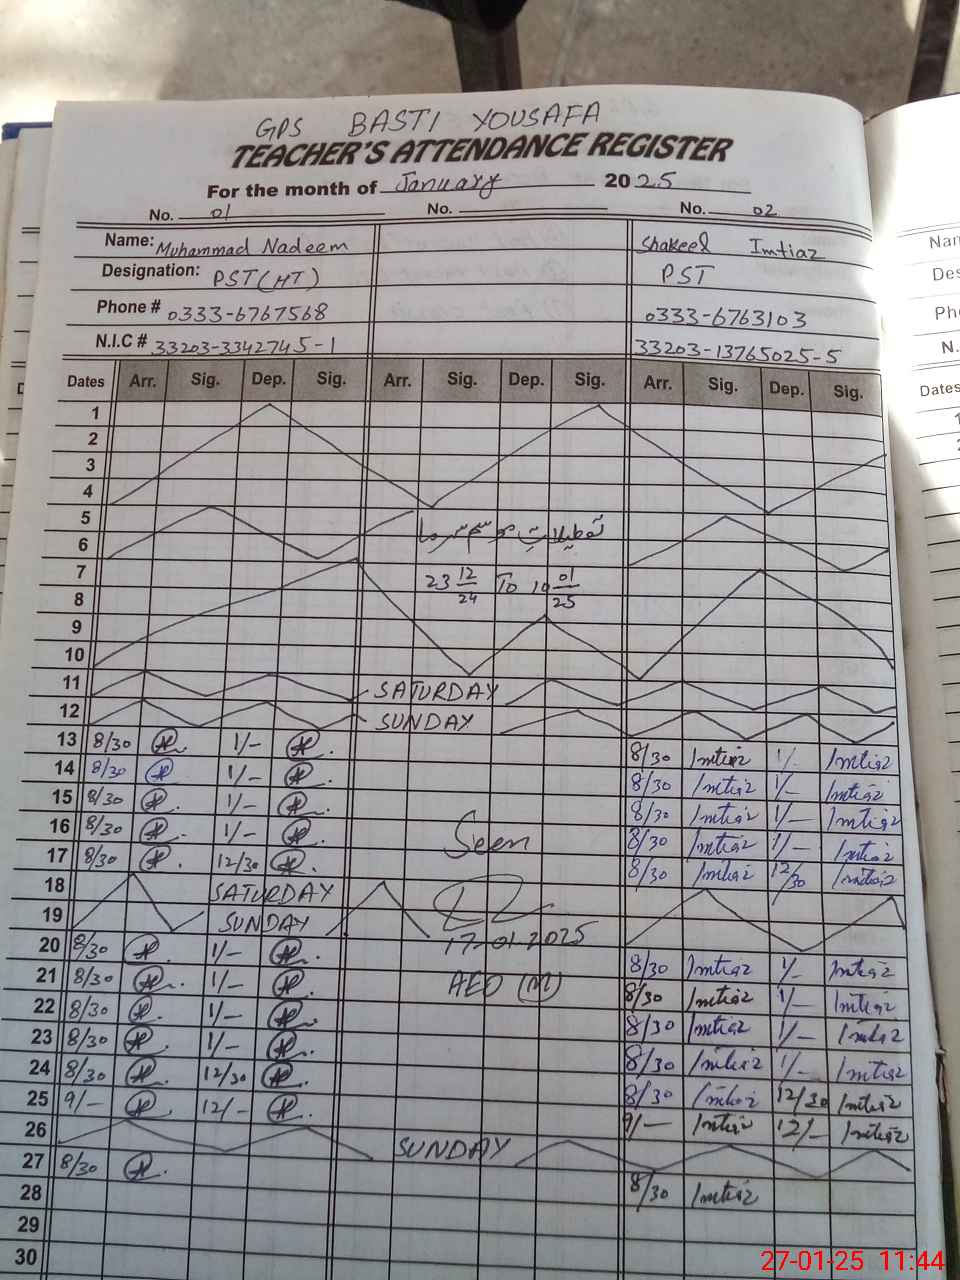 GPS BASTI YOUSAFA
TEACHER'S ATTENDANCE REGISTER
For the month of January 2025
No. 01 No. No. 02
Name: Muhammad Nadeem Shakeel Imtiaz
Designation: PST(HT) PST
Phone # 0333-6767568 0333-6763103
N.I.C # 33203-3342745-1 33203-13765025-5
Dates Arr. Sig. Dep. Sig. Arr. Sig. Dep. Sig. Arr. Sig. Dep. Sig.
1
2
3
4
5
6 تعطیلات موسم سرما
7 23 12/24 To 10 01/25
8
9
10
11 SATURDAY
12 SUNDAY
13 8/30 1/- 8/30 Imtiaz 1/- Imtiaz
14 8/30 1/- 8/30 Imtiaz 1/- Imtiaz
15 8/30 1/- 8/30 Imtiaz 1/- Imtiaz
16 8/30 1/- Seen 8/30 Imtiaz 1/- Imtiaz
17 8/30 12/30 8/30 Imtiaz 12/30 Imtiaz
18 SATURDAY
19 SUNDAY
20 8/30 1/- 17-01-2025 8/30 Imtiaz 1/- Imtiaz
21 8/30 1/- AEO (M) 8/30 Imtiaz 1/- Imtiaz
22 8/30 1/- 8/30 Imtiaz 1/- Imtiaz
23 8/30 1/- 8/30 Imtiaz 1/- Imtiaz
24 8/30 12/30 8/30 Imtiaz 12/30 Imtiaz
25 9/- 12/- 9/- Imtiaz 12/- Imtiaz
26 SUNDAY
27 8/30 8/30 Imtiaz
28
29
30
Nam
Des
Pho
N.
Dates
27-01-25 11:44